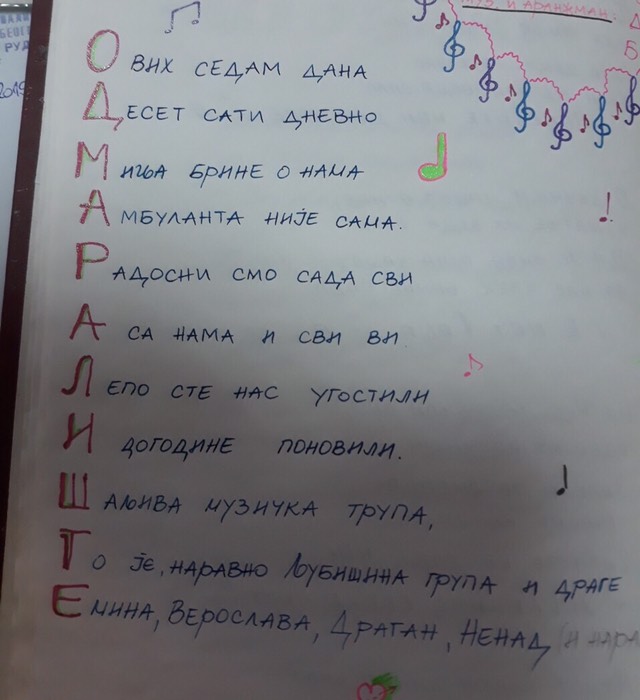 МУЗ. И АРАНЖМАН:
ОВИХ СЕДАМ ДАНА
ДЕСЕТ САТИ ДНЕВНО
МИЉА БРИНЕ О НАМА
АМБУЛАНТА НИЈЕ САМА.
РАДОСНИ СМО САДА СВИ
А СА НАМА И СВИ ВИ
ЛЕПО СТЕ НАС УГОСТИЛИ
И ДОГОДИНЕ ПОНОВИЛИ.
ШАЉИВА МУЗИЧКА ТРУПА,
ТО ЈЕ, НАРАВНО ЉУБИШИНА ГРУПА И ДРАГЕ
ЕМИНА, ВЕРОСЛАВА, ДРАГАН, НЕНАД (И НАРА
2019